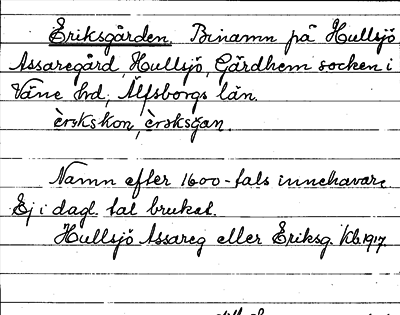 Eriksgården. Binamn på Hullsjö
Assaregård, Hullsjö, Gärdhem socken i
Väne hrd, Älfsborgs län.
èrskskon, èrsksgan.
Namn efter 1600-tals innehavare.
Ej i dagl. tal brukat.
Hullsjö Assareg eller Eriksg. 1/Kb. 1917